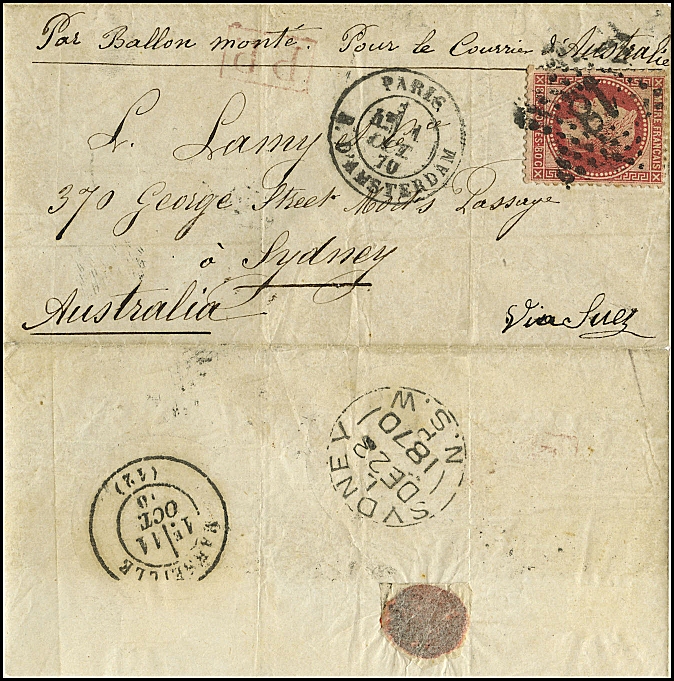 Par Ballon monté. Pour le Courrier d'Australie
PP
PARIS
OCT.
70
R. D'AMSTERDAM
EMPIRE FRANÇAIS
L. Lamy
370 George Street Mort's Passage
à Sydney
Australia
Via Suez
SYDNEY N.S.W
DE 22
1870
MARSEILLE
1E/11
OCT
(12)